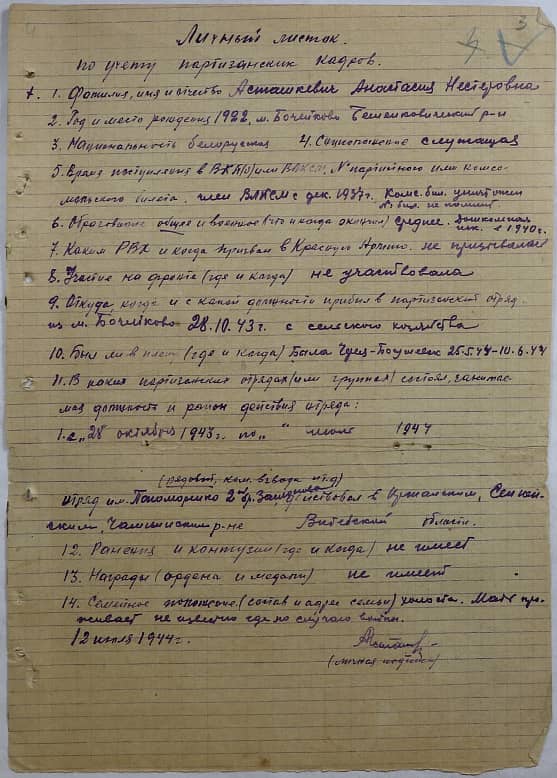 3
Личный листок.
по учету партизанских кадров.
1. Фамилия, имя и отчество Асташкевич Анастасия Нестеровна
2. Год и место рождения 1922, м. Бочейково Бешенковичский р-н
3. Национальность белорусская 4. Соцположение служащая
5. Время поступления в ВКП(б) или ВЛКСМ, № партийного или комсо
мольского билета. член ВЛКСМ с дек. 1937г. Комс. бил. уничтожен
№ бил. не помнит
6. Образование общее и военное (что и когда окончил) среднее. Дошкольная
в 1940г.
7. Каким РВК и когда призван в Красную Армию. не призывалась
8. Участие на фронте (где и когда) не участвовала
9. Откуда, когда и с какой должности прибыл в партизанский отряд
из м. Бочейково 28.10.43г. с сельского хозяйства
10. Был ли в плену (где и когда) Была 25.5.44-10.6.44
11. В каких партизанских отрядах (или группах) состоял, занимае
мая должность и район действия отряда:
1. с „28 октября 1943г. по „ “ июль 1944
(рядовой, ком. взвода и т.д)
отряд им. Пономоренко 2 действовал в Сен
ским Чашникским р-не Витебской области.
12. Ранения и контузии (где и когда) не имеет
13. Награды (ордена и медали) не имеет
14. Семейное положение (состав и адрес семьи) холоста. Мать про
живает не известно где по случаю войны.
12 июля 1944г.
(личная подпись)